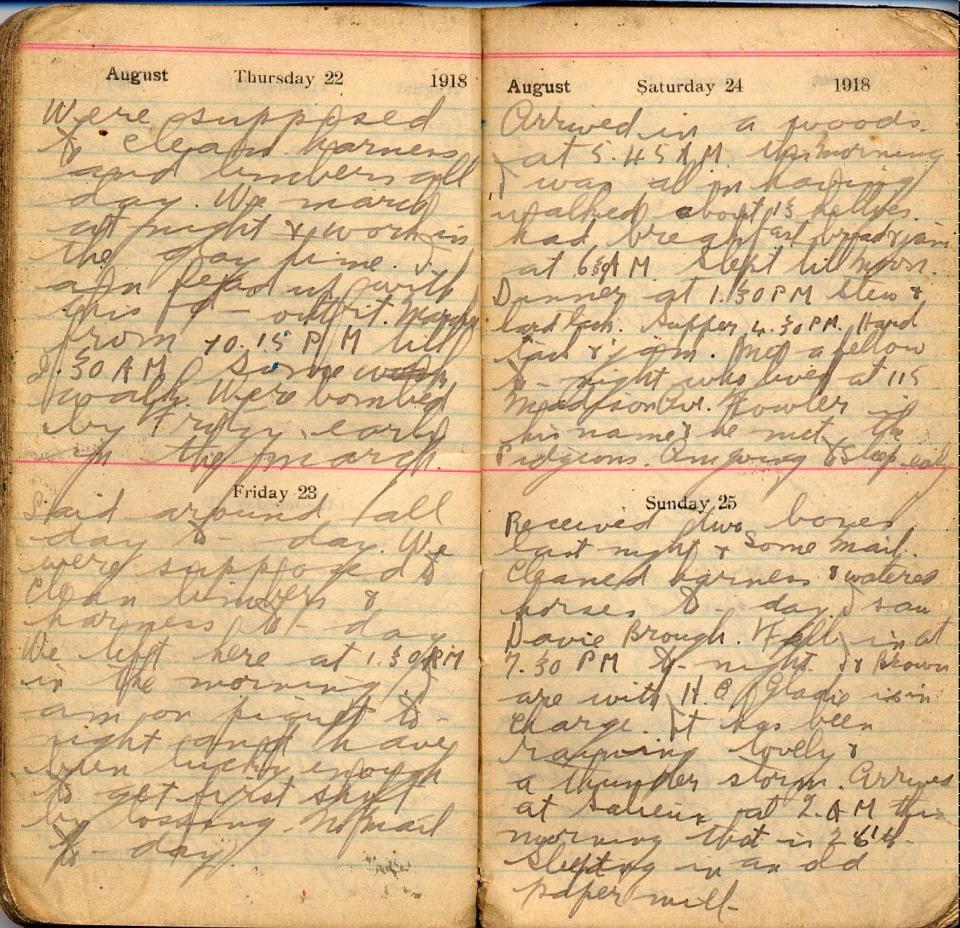 August Thursday 22 1918
Were supposed
to clean harness
and limbers all
day. We march
at night & work in
the day time. I
am fead up with
this f - outfit. March
from 10.15 P M till
2.30 A M Some
walk. Were bombed
by Fritzy early
in the march.
Friday 23
Laid around all
day to - day. We
were supposed to
Clean limbers &
harness to - day
We left here at 1.30 AM
in the morning I
am on piquet to -
night and have
been lucky enough
to get first shift
by tossing. No mail
to - day
August Saturday 24 1918
Arrived in a woods
at 5.45 A M. this morning
I was all in having
walked about 15 miles.
had breakfast bread & jam
at 6 A M Slept till Noon.
Dinner at 1.30 P M Stew &
hard tack. Supper 4.30 P.M. Hard
tack & jam. Met a fellow
to - night who lived at 115
Madison Ave. Fowler is
his name & he met the
Pidgeons. Am going to Sleep early
Sunday 25
Received two boxes
last night & some mail.
Cleaned harness & watered
horses to - day. I saw
Davie Brough. Fall in at
7.30 PM to - night. I & Brown
are with H.Q. Gladie is in
Charge. It has been
raining lovely &
a thunder storm. Arrived
at at 2. A M this
morning that is 26th -
Sleeping in an old
paper mill -